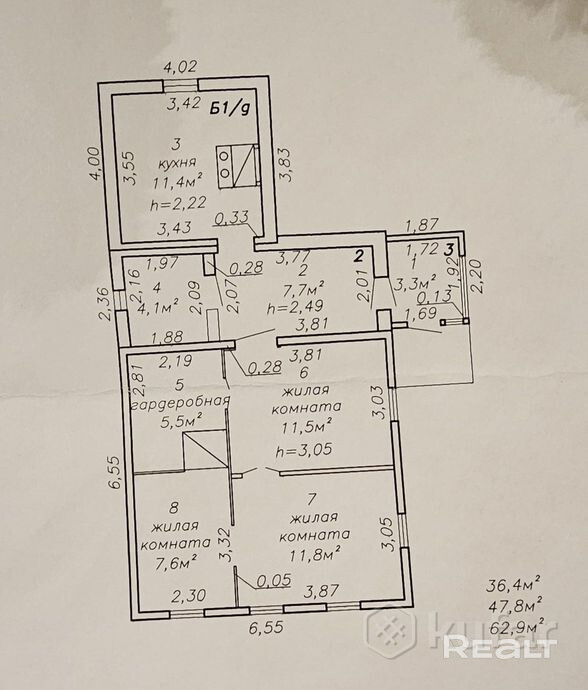 4,02
3,42
Б1/д
4,00
3,55
3
кухня
11,4м²
h=2,22
3,83
3,43
0,33
1,87
1,72
3
1
3,3м²
1,92
2,20
0,13
1,69
1,97
4
4,1м²
2,36
2,16
2,09
1,88
0,28
2,07
3,77
2
2
7,7м²
h=2,49
2,01
3,81
2,19
2,81
5
гардеробная
5,5м²
0,28
3,81
6
жилая
комната
11,5м²
h=3,05
3,03
6,55
8
жилая
комната
7,6м²
2,30
3,32
7
жилая
комната
11,8м²
3,05
0,05
3,87
6,55
36,4м²
47,8м²
62,9м²
kufar
REALT